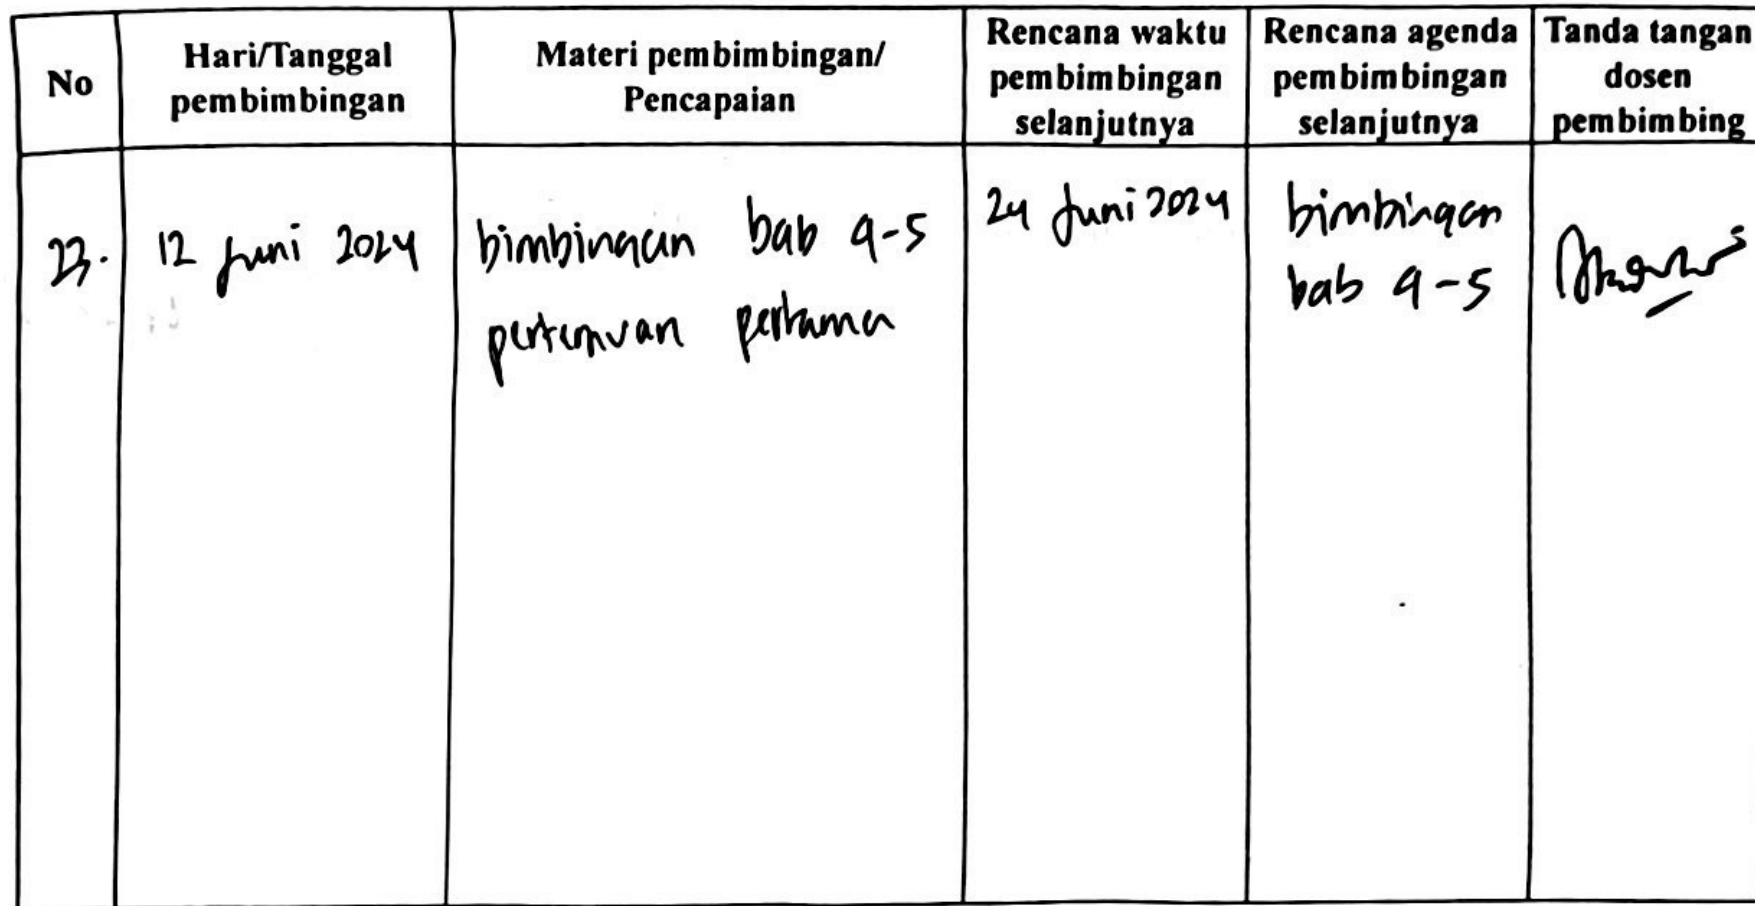 No
Hari/Tanggal
pembimbingan
Materi pembimbingan/
Pencapaian
Rencana waktu
pembimbingan
selanjutnya
Rencana agenda
pembimbingan
selanjutnya
Tanda tangan
dosen
pembimbing
23.
12 Juni 2024
bimbingan bab 4-5
pertemuan pertama
24 Juni 2024
bimbingan
bab 4-5